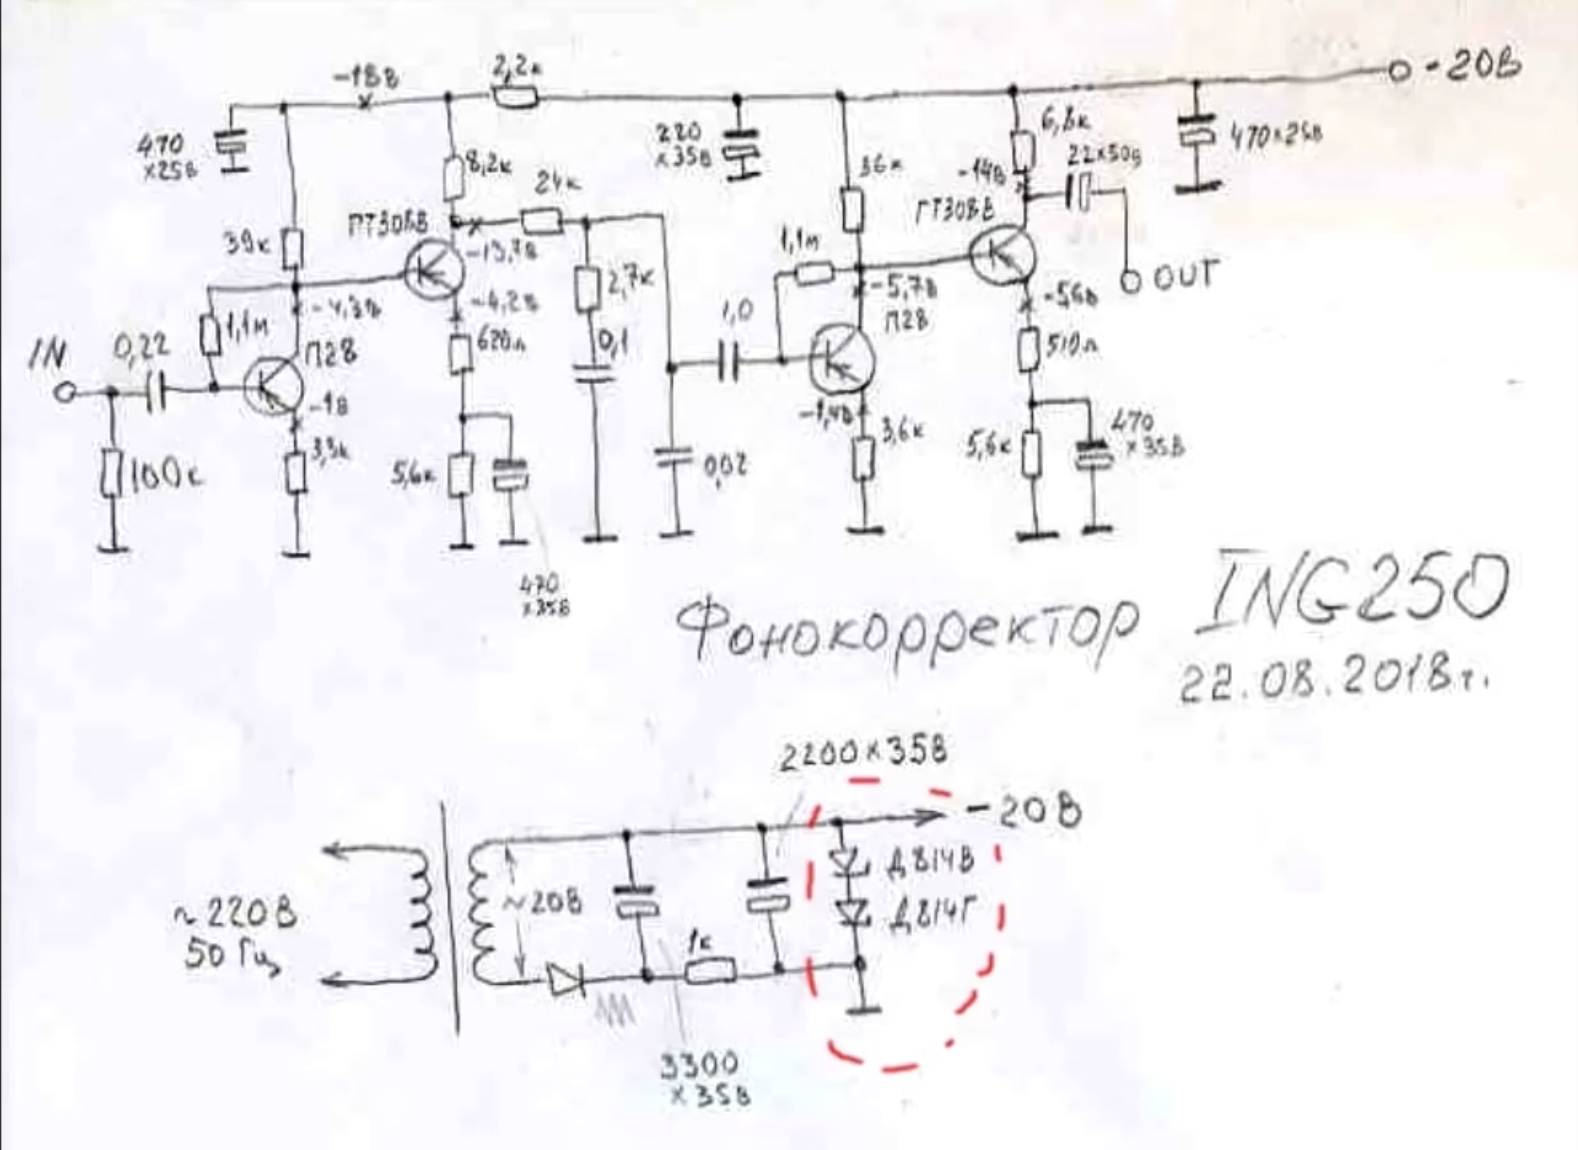 -18в
2,2к
-20В
470
×25В
220
×35В
6,8к
22×50В
470×25В
8,2к
24к
36к
-14в
39к
ГТ308В
-13,7в
2,7к
1,1м
-5,7в
П28
ГТ308В
OUT
-4,3в
-4,2в
-5,6в
IN
0,22
1,1м
П28
620л
0,1
1,0
510л
-1в
-1,4в
3,6к
470
×35В
100к
3,3к
5,6к
0,02
5,6к
470
×35В
Фонокорректор ING250
22.08.2018г.
2200×35В
-20В
~220В
50 Гц
~20В
Д814В
Д814Г
1к
3300
×35В